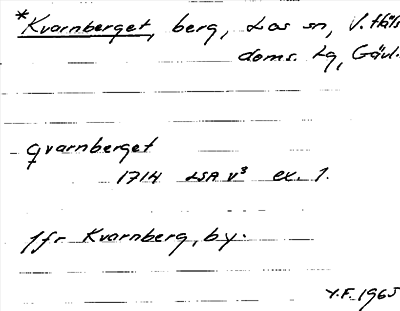 *Kvarnberget, berg, Los sn, V. Häls
doms. lg, Gävl.
qvarnberget
1714 LSA V³ ex. 1.
Jfr Kvarnberg, by.
Y.F. 1965